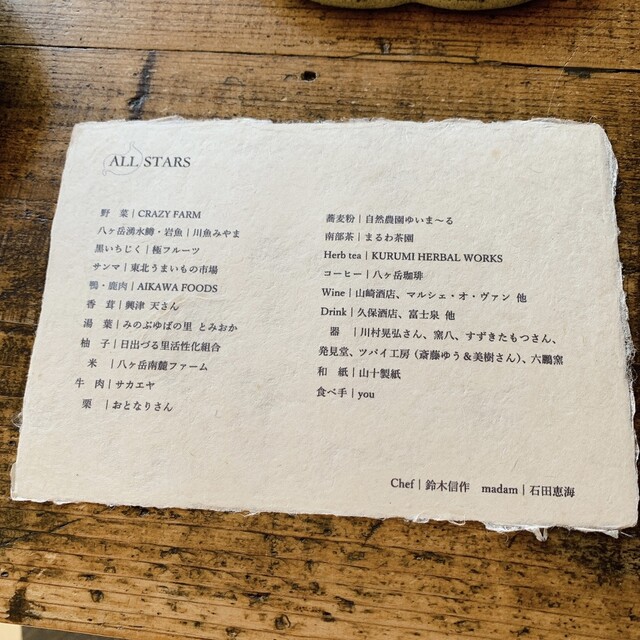 ALL STARS
野　菜｜CRAZY FARM
八ヶ岳湧水鱒・岩魚｜川魚みやま
黒いちじく｜極フルーツ
サンマ｜東北うまいもの市場
鴨・鹿肉｜AIKAWA FOODS
香　茸｜興津 天さん
湯　葉｜みのぶゆばの里 とみおか
柚　子｜日出づる里活性化組合
米　｜八ヶ岳南麓ファーム
牛　肉｜サカエヤ
栗　｜おとなりさん
蕎麦粉｜自然農園ゆいま～る
南部茶｜まるわ茶園
Herb tea｜KURUMI HERBAL WORKS
コーヒー｜八ヶ岳珈琲
Wine｜山崎酒店、マルシェ・オ・ヴァン 他
Drink｜久保酒店、富士泉 他
器　｜川村晃弘さん、窯八、すずきたもつさん、
発見堂、ツバイ工房（斎藤ゆう＆美樹さん）、六鵬窯
和　紙｜山十製紙
食べ手｜you
Chef｜鈴木信作　madam｜石田恵海